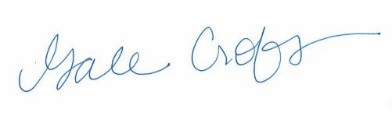 Gale Crops